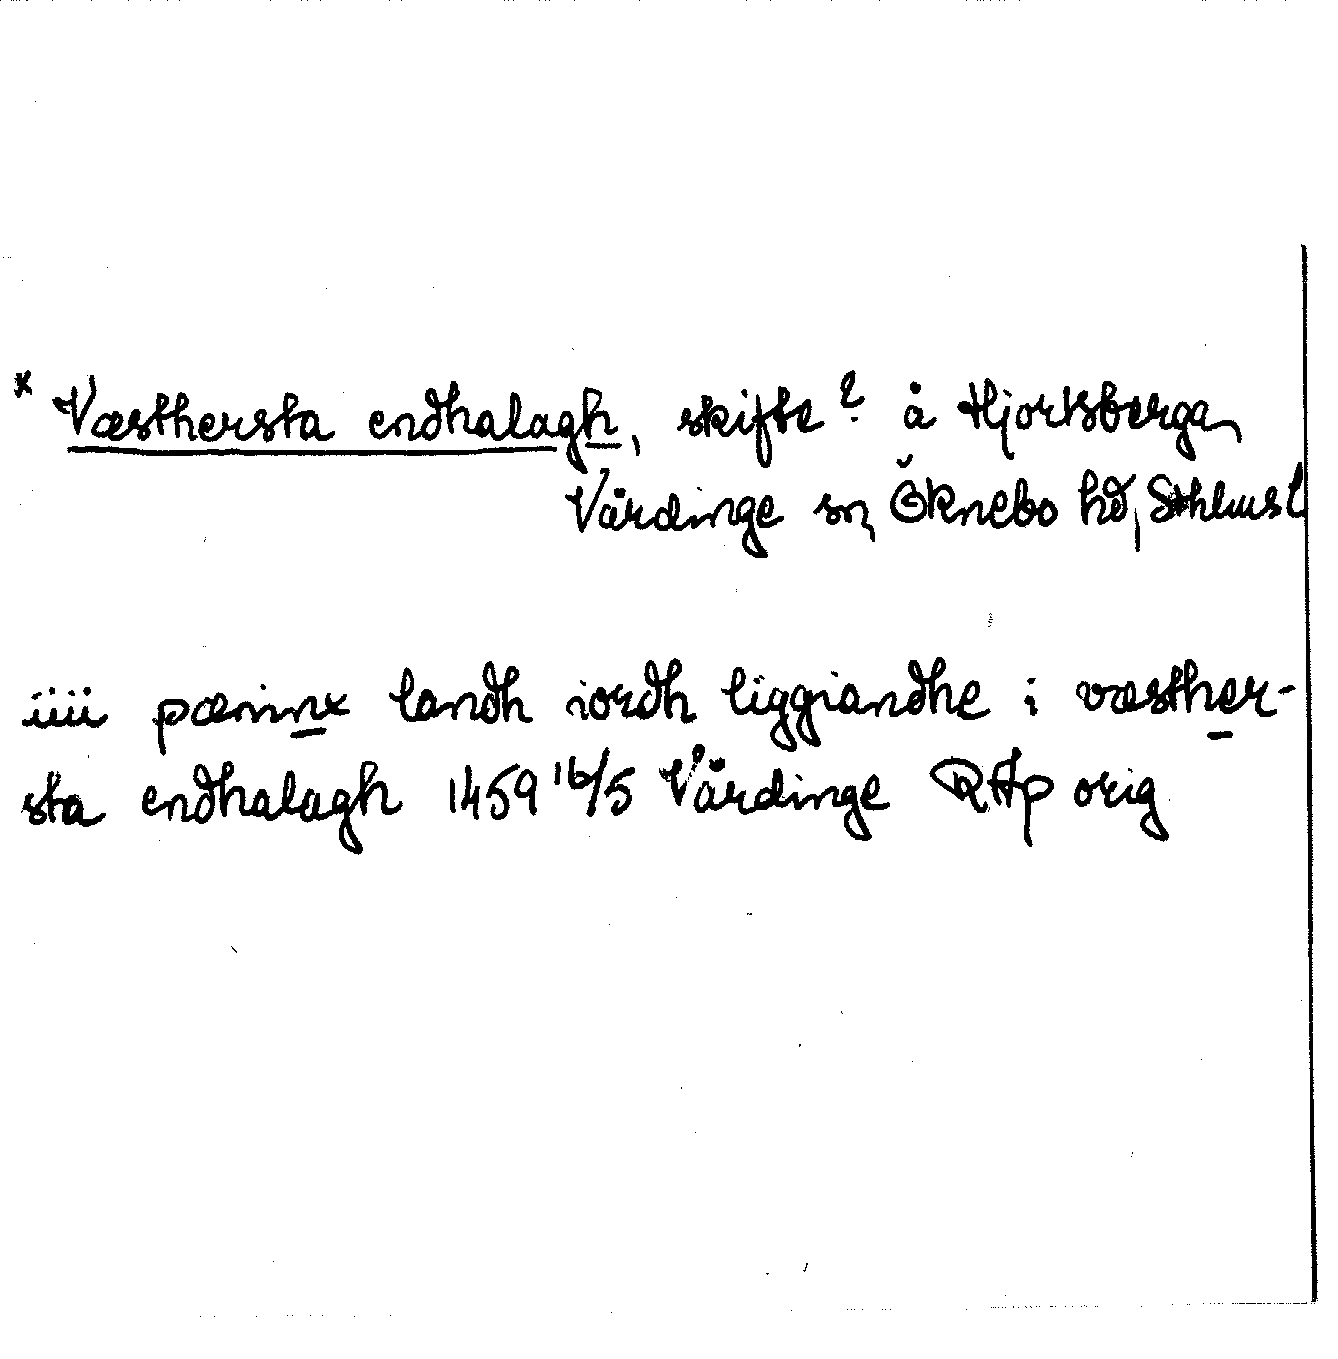 * Væsthersta endhalagh, skifte? å Hjortsberga,
Vårdinge sn, Öknebo hd, Sthlmsl
iiii pæninx landh iordh liggiandhe i væsther-
sta endhalagh 1459 16/5 Vårdinge RAp orig